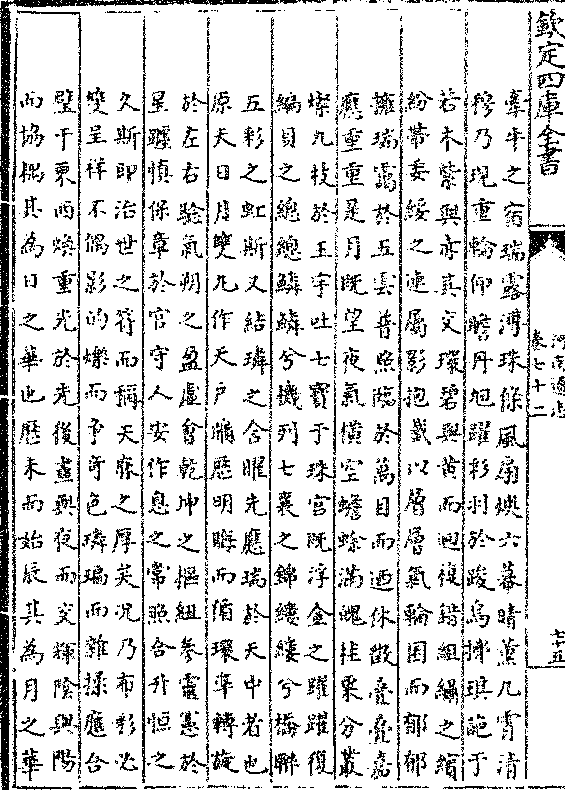 欽定四庫全書
河南通志
卷七十二
七十五
牽牛之宿瑞露溥珠條風扇燠六幕晴薰九霄清
穆乃現重輪仰瞻丹旭躍彩羽於踆烏攡琪葩于
若木紫與赤其文環碧與黃而迴復錯組繡之繽
紛帶委綏之連屬影抱戴以層層氣輪囷而郁郁
擁瑞靄於五雲普照臨於萬目而迺休徵疊疊嘉
應重重是月既望夜氣橫空蟾蜍滿魄桂粟分叢
燦九枝於玉宇吐七寶于珠宮既浮金之躍躍復
編貝之總總鱗鱗兮機列七襄之錦縷縷兮橋聯
五彩之虹斯又結璘之含曜先應瑞於天中者也
原夫日月雙丸作天戶牖歷明晦而循環準轉旋
於左右驗氣朔之盈虛會乾坤之樞紐參靈憲於
星躔慎保章於官守人安作息之常照合升恒之
久斯即治世之符而稱天庥之厚矣况乃布彩必
雙呈祥不偶影的爍而爭奇色璘㻞而雜揉應合
璧于東西煥重光於先後晝與夜而交輝陰與陽
而協耦其為日之華也歷未而始辰其為月之華